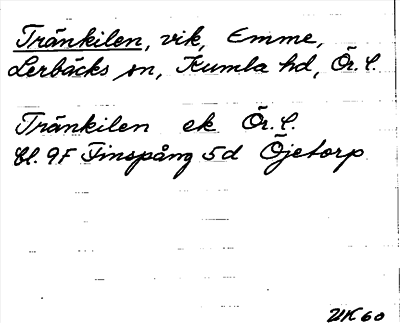 Tränkilen, vik, Emme,
Lerbäcks sn, Kumla hd, Ör. l.
Tränkilen ek Ör. l.
bl. 9F Finspång 5d Öjetorp
UK 60